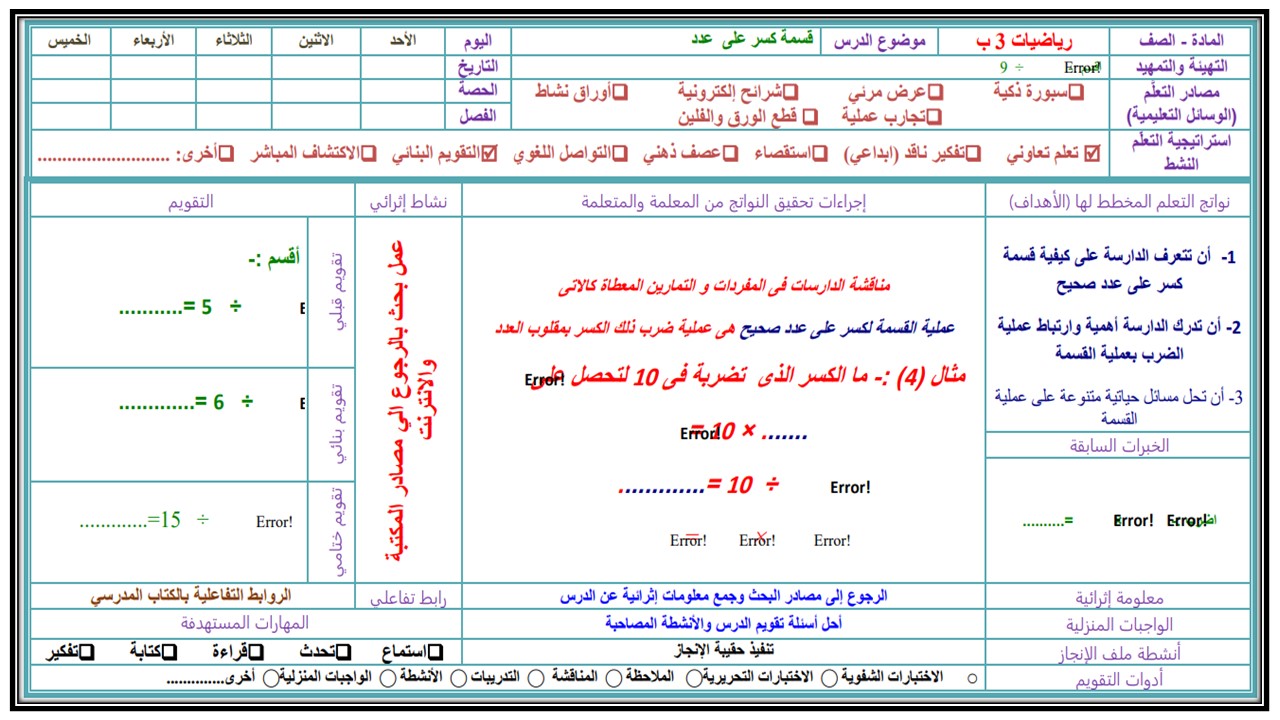 المادة - الصف
رياضيات 3 ب
موضوع الدرس
قسمة كسر على عدد
اليوم
الأحد
الاثنين
الثلاثاء
الأربعاء
الخميس
التهيئة والتمهيد
Error! ÷ 9
التاريخ
مصادر التعلّم
(الوسائل التعليمية)
❑سبورة ذكية ❑عرض مرئي ❑شرائح إلكترونية ❑أوراق نشاط
❑تجارب عملية ❑ قطع الورق والفلين
الحصة
الفصل
استراتيجية التعلّم
النشط
☑ تعلم تعاوني ❑تفكير ناقد (ابداعي) ❑استقصاء ❑عصف ذهني ❑التواصل اللغوي ☑التقويم البنائي ❑الاكتشاف المباشر ❑أخرى: ...........................
نواتج التعلم المخطط لها (الأهداف)
إجراءات تحقيق النواتج من المعلمة والمتعلمة
نشاط إثرائي
التقويم
1- أن تتعرف الدارسة على كيفية قسمة
كسر على عدد صحيح
2- أن تدرك الدارسة أهمية وارتباط عملية
الضرب بعملية القسمة
3- أن تحل مسائل حياتية متنوعة على عملية
القسمة
الخبرات السابقة
Error! Error! =..........
مناقشة الدارسات فى المفردات و التمارين المعطاة كالاتى
عملية القسمة لكسر على عدد صحيح هى عملية ضرب ذلك الكسر بمقلوب العدد
مثال (4) :- ما الكسر الذى تضربة فى 10 لتحصل على Error!
....... × 10 = Error!
Error! ÷ 10 =.............
Error! × Error! = Error!
عمل بحث بالرجوع الي مصادر المكتبة
والانترنت
تقويم قبلي
أقسم :-
÷ 5 =...........
تقويم بنائي
÷ 6 =.............
تقويم ختامي
Error! ÷ 15=.............
معلومة إثرائية
الرجوع إلى مصادر البحث وجمع معلومات إثرائية عن الدرس
رابط تفاعلي
الروابط التفاعلية بالكتاب المدرسي
الواجبات المنزلية
أحل أسئلة تقويم الدرس والأنشطة المصاحبة
المهارات المستهدفة
أنشطة ملف الإنجاز
تنفيذ حقيبة الإنجاز
❑استماع ❑تحدث ❑قراءة ❑كتابة ❑تفكير
أدوات التقويم
○ الاختبارات الشفوية ○ الاختبارات التحريرية○ الملاحظة ○ المناقشة ○ التدريبات ○ الأنشطة ○ الواجبات المنزلية○ أخرى..............